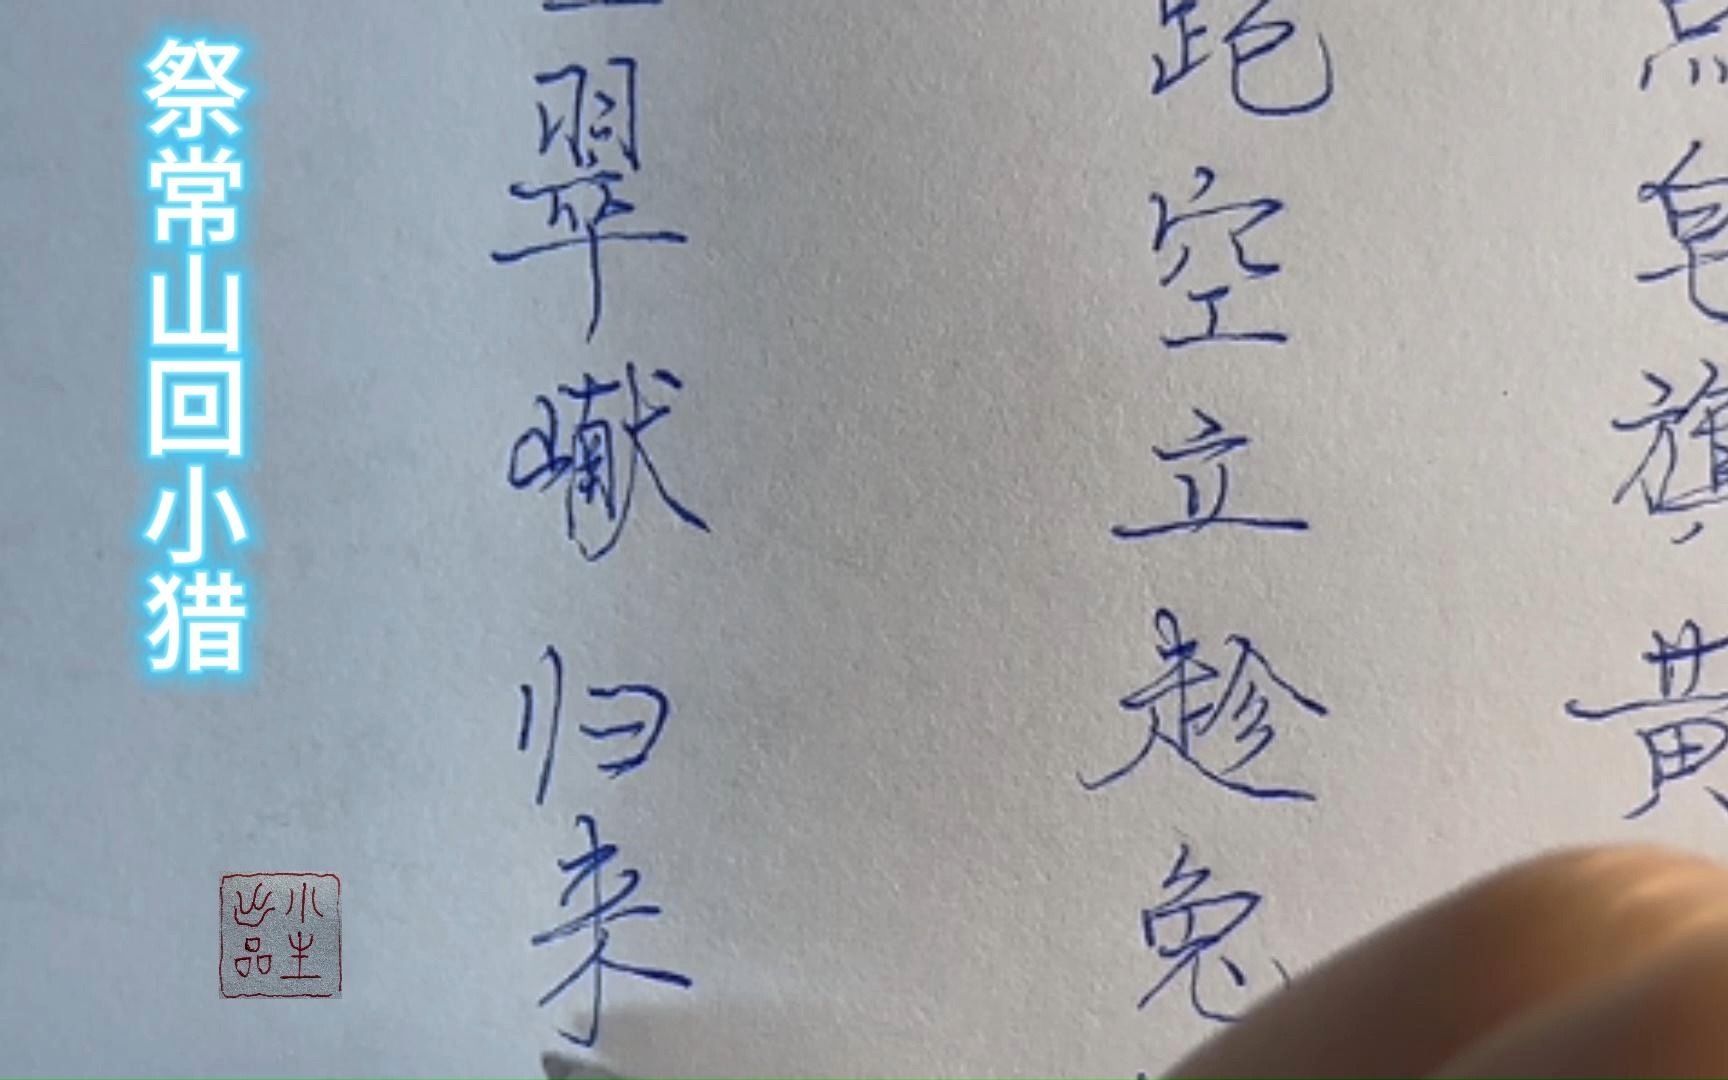 点皂旗黄
跑空立趁兔
翠𪩘归来
祭常山回小猎
小生
出品